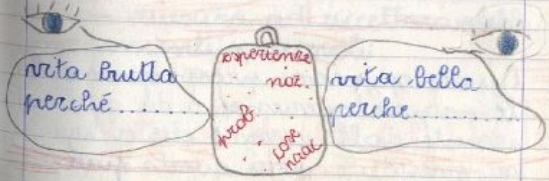 vita brutta
perché..........
esperienze
noz.
prob
cose
vita bella
perche..........